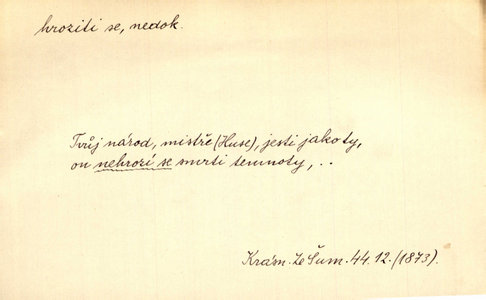 hroziti se, nedok.
Tvůj národ, mistře (Huse), jesti jako ty,
on nehrozí se smrti temnoty, ..
Krásn. Ze Šum. 44. 12. (1873).